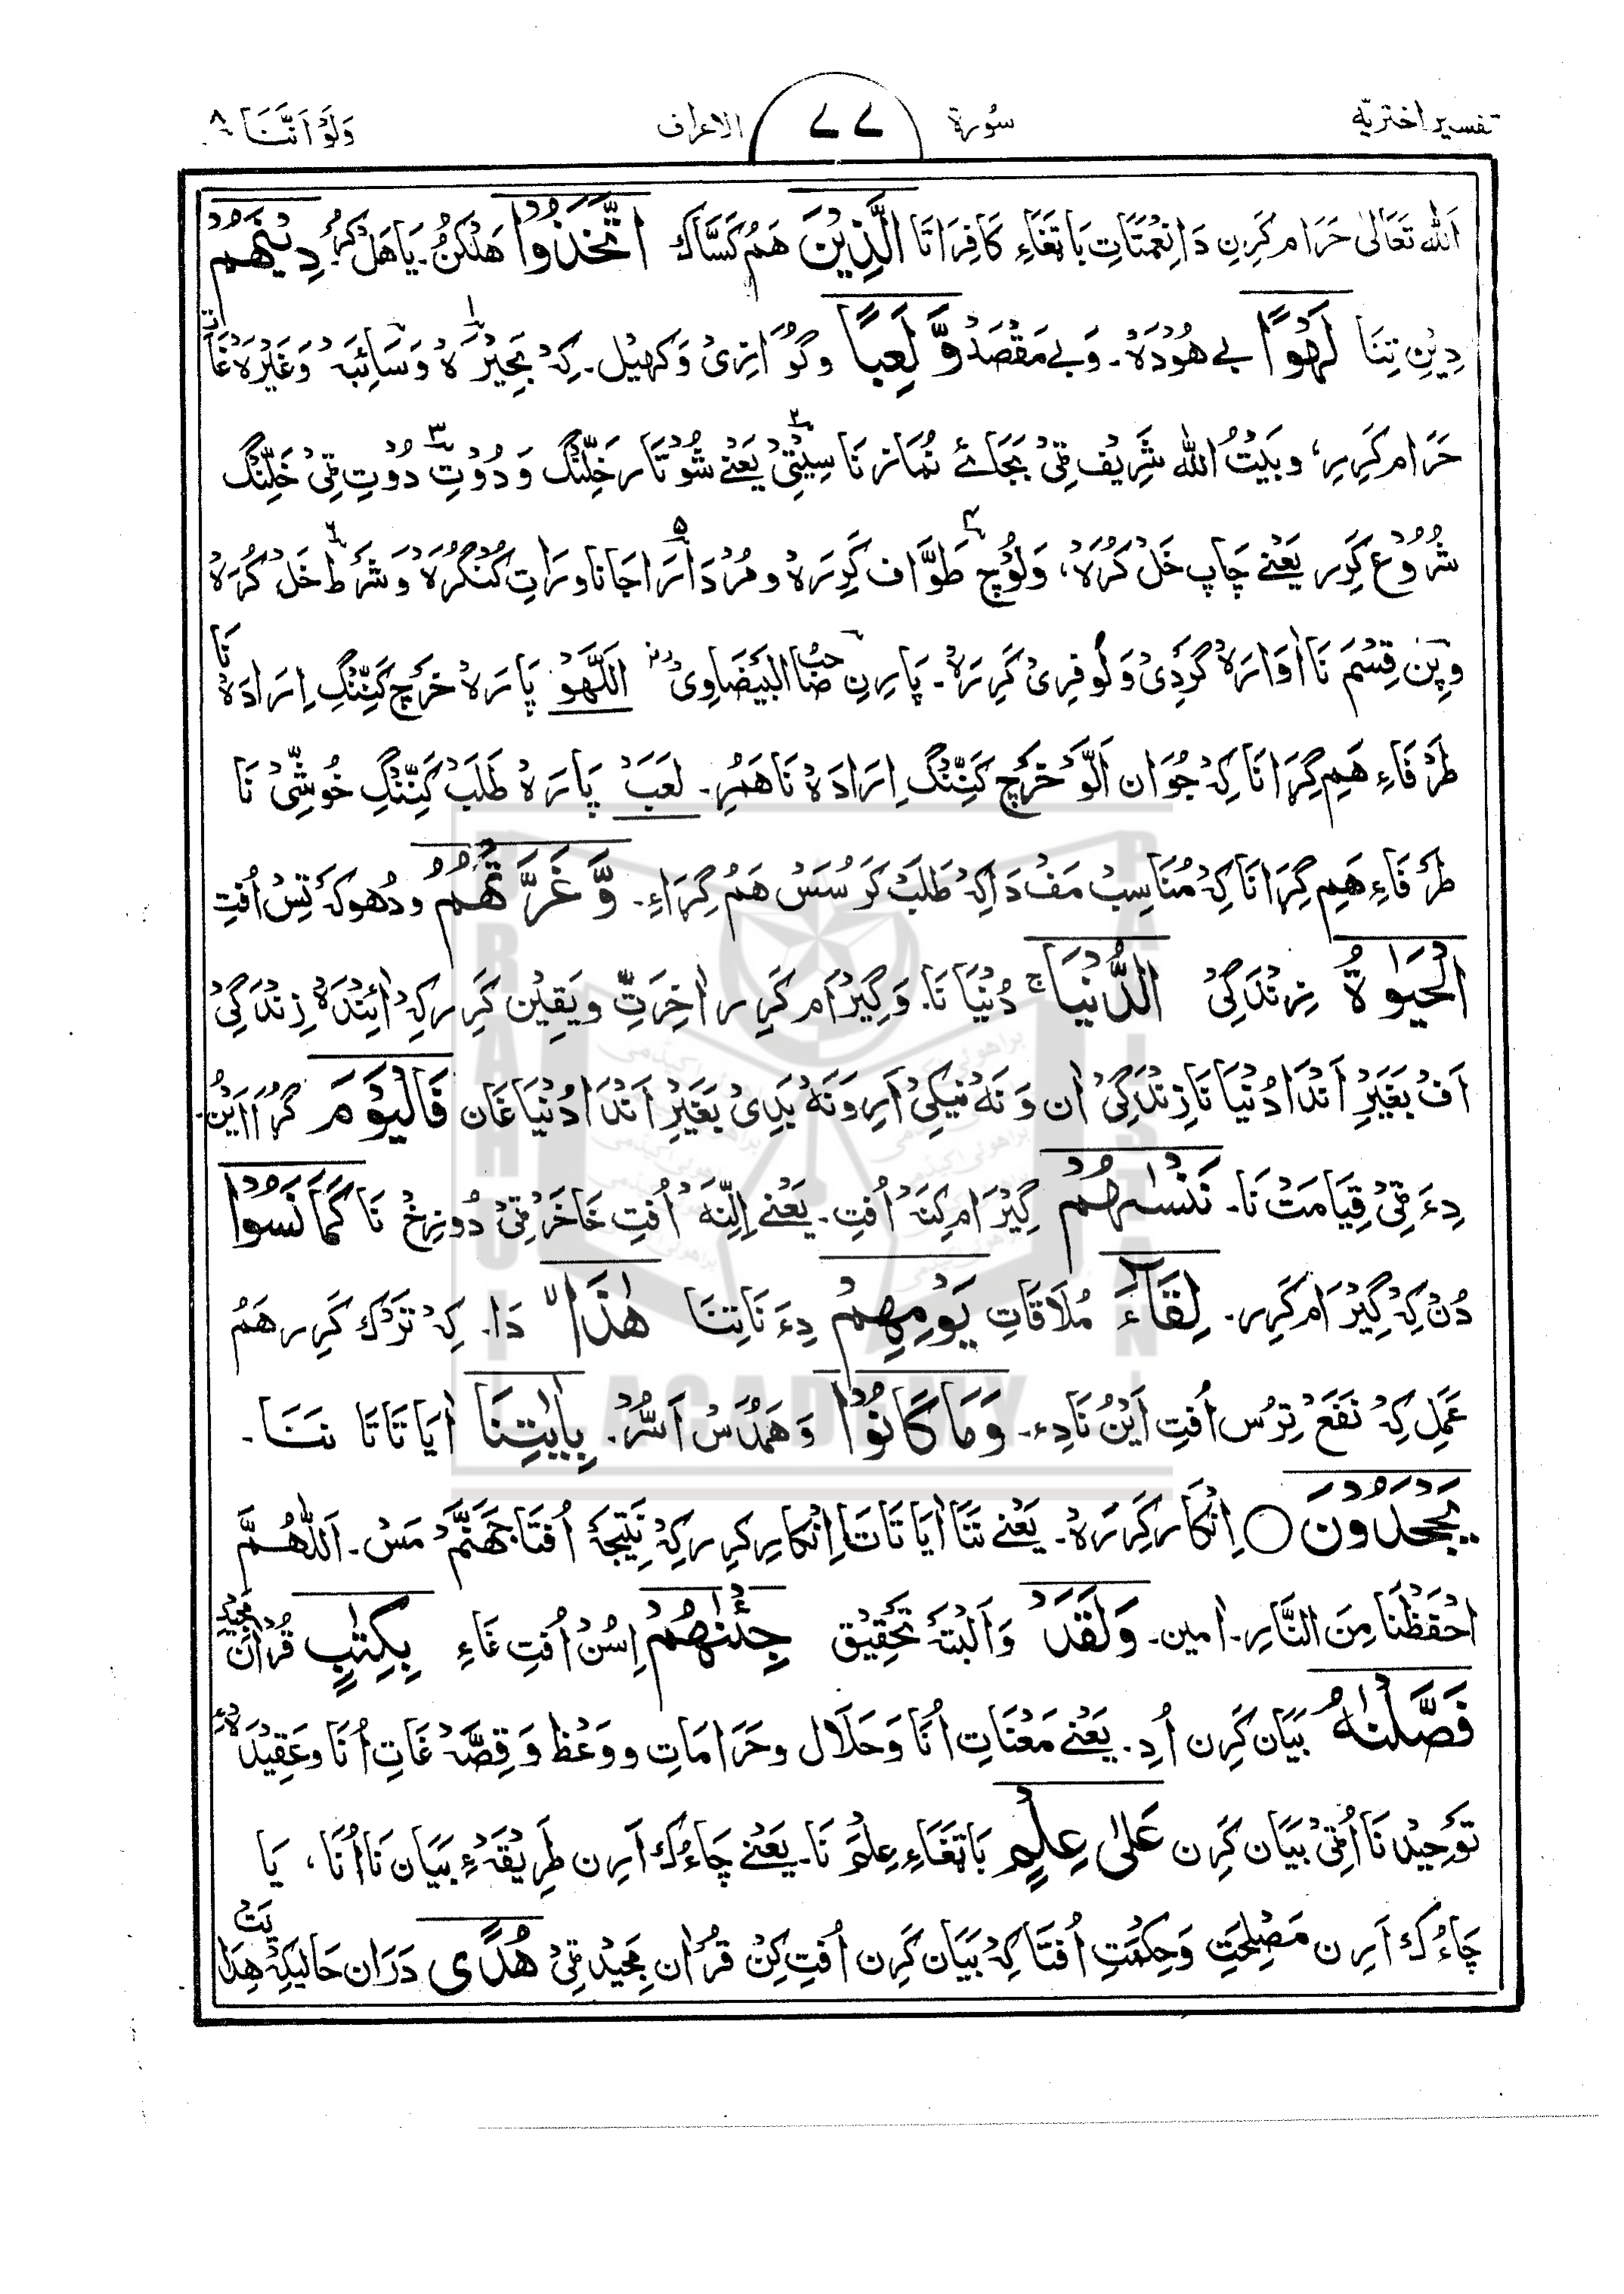 تفسیر اختریّه سُورة ۷۷ الاعراف وَلَوْ اَنَّنَا ۸
اَللّٰه تَعَالیٰ حَرَام کَرِن دَا نِعْمَتَاتِ بَاتغَاءِ کَافِرَاتَا الَّذِیْنَ هَمُ کَسَّاک اتَّخَذُوْا هَلْکُنُ۔ یَا هَلْ کُرُ دِیْنَهُمْ
دِیْنِ تِنَا لَهْوًا بے هُوْدَهْ۔ وَبے مَقْصَدْ وَّ لَعِبًا وگُوْازِیْ وَکھیْل۔ کِهْ بَحِیْرَهْ وَسَائِبَهْ وَغَیْرَهْ غَا
حَرَام کَرِیر، وبَیْتُ اللّٰه شَرِیْف ٹِیْ بَجَائے نُمَازنَا سِیْٹِیْ یَعْنے شُوْتَار خَلِّنگ وَدُوْتِ دُوْتِ ٹِیْ خَلِّنگ
شُرُوْع کَرِیر یَعْنے چَاپ خَلْ کُرَهْ، وَلُوْچ طَوَّاف کَرِیرَهْ ومُرْدَارَا جَانَاوَرَاتِ کُنْگُرَهْ وَشَرَط خَلْ کُرَهْ
وپِن قِسْم نَا اٰوَارَهْ گَرْدِیْ وَلَوْفِرِیْ کَرِیرَهْ۔ پَارِین صَاحب البَیْضَاوِیْ اَللَّهْوُ پَارَهْ خَرچ کَنِّنگ اِرَادَهْ نَا
طَرْفَاءِ هَمِ گِرَانَا کِهْ جُوَان اَلَّوْ خَرچ کَنِّنگ اِرَادَهْ نَا هَمُرِ۔ لَعَبَ پَارَهْ طَلَبْ کَنِّنگ خُوْشِّیْ نَا
طَرْفَاءِ هَمِ گِرَانَا کِهْ مُنَاسِبْ مَفْ دَاکِهْ طَلَبْ کَرْسُسْ هَمُ گِرَاءِ۔ وَّ غَرَّتْهُمُ ودُهوکَه تِسْ اُفتِ
الْحَیٰوةُ زِنْدَگِیْ الدُّنْیَا ج دُنْیَا نَا۔ وَگِیْرَام کَرِیر اٰخِرَتِ ویَقِیْن کَرِیر کِهْ اٰئِنْدَهْ زِنْدَگِیْ
اَفْ بَغَیْرِ اَنْدَا دُنْیَا نَا زِنْدَگِیْ اٰن وَنَه نیْکِیْ اَرِ وَنَهْ بَدِیْ بَغَیْرِ اَنْدَا دُنْیَا غَان فَالْیَوْمَ گُرَا اَیْنُ
دِءَ ٹِیْ قِیَامَتْ نَا۔ نَنْسٰهُمْ گِیْرَام کِنَهْ اُفتِ۔ یَعْنے اِلِّنَهْ اُفتِ خَاخَرْ ٹِیْ دُوزِخْ نَا کَمَا نَسُوْا
دُنْ کِهْ گِیْرَام کَرِیر۔ لِقَآءَ مُلَاقَاتِ یَوْمِهِمْ دِءَ نَاتِنَا هٰذَا دَا۔ کِهْ تَرْک کَرِیر هَمُ
عَمَلِ کِهْ نَفَعْ تِرُس اُفتِ اَیْنُ نَادِء۔ وَمَا کَانُوْا وَهَمُدُسْ اَسُّرْ۔ بِاٰیٰتِنَا اٰیَاتَاتَا نَنَا۔
یَجْحَدُوْنَ ○ اِنْکَار کَرِیرَهْ۔ یَعْنے نَنَا اٰیَاتَاتَا اِنْکَار کَرِیر کِهْ نَتِیْجَهٔ اُفتَا جَهَنَّمْ مَسْ۔ اَللّٰهُمَّ
احْفَظْنَا مِنَ النَّارِ۔ اٰمین۔ وَلَقَدْ وَاَلْبَتَّهْ تَحْقِیْق جِئْنٰهُمْ اِسُنْ اُفتِ غَاءِ بِکِتٰبٍ قُرْاٰن مَجِیْد
فَصَّلْنٰهُ بَیَان کَرِن اُدِ۔ یَعْنے مَعْنَاتِ اُنَا وَحَلَال وحَرَامَاتِ ووَعْظ وَقِصَّهْ غَاتِ اُنَا وعَقِیْدَهْءِ
تَوْحِیْدنَا اُٹِیْ بَیَان کَرِن عَلٰی عِلْمٍ بَاتغَاءِ عِلْمَ نَا۔ یَعْنے چَاءُک اَرِن طَرِیْقَهْءِ بَیَان نَا اُنَا، یَا
چَاءُک اَرِن مَصْلِحَتِ وَحِکْمَتِ اُفتَا کِهْ بَیَان کَرِن اُفتِ کِنْ قُرْاٰن مَجِیْد ٹِیْ هُدًی دَرَان حَالیکِهْ هِدَایَت
BRAHUI ACADEMY PAKISTAN